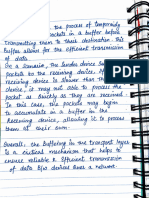 the process of temporarily
packets in a buffer before
transmitting them to their destination. This
buffer allows for the efficient transmission
of data.
In a scenario, the sender device sends
packets to the receiving device. If the
receiving device is slower than the
device, it may not able to process the
packet as quickly as they are received
In this case, the packets may begin
to accumulate in a buffer in the
Receiving device, allowing it to process
them at their own.
Overall, the buffering in the transport layer
is a critical mechanism that helps to
ensure reliable & Efficient transmission
of data b/w devices over a network.